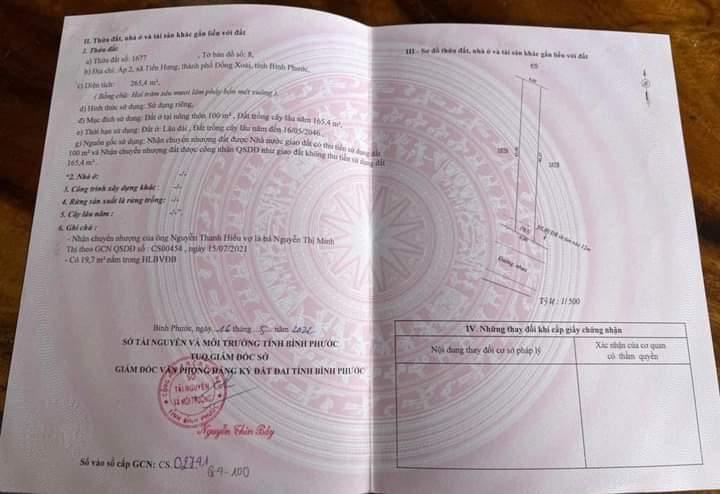 II. Thửa đất, nhà ở và tài sản khác gắn liền với đất
1. Thửa đất:
a) Thửa đất số: 1677 , Tờ bản đồ số: 8,
b) Địa chỉ: Ấp 2, xã Tiến Hưng, thành phố Đồng Xoài, tỉnh Bình Phước,
c) Diện tích: 265,4 m²,
( Bằng chữ: Hai trăm sáu mươi lăm phẩy bốn mét vuông ).
d) Hình thức sử dụng: Sử dụng riêng,
đ) Mục đích sử dụng: Đất ở tại nông thôn 100 m² , Đất trồng cây lâu năm 165,4 m²,
e) Thời hạn sử dụng: Đất ở: Lâu dài , Đất trồng cây lâu năm đến 16/05/2046 ,
g) Nguồn gốc sử dụng: Nhận chuyển nhượng đất được Nhà nước giao đất có thu tiền sử dụng đất
100 m² và Nhận chuyển nhượng đất được công nhận QSDĐ như giao đất không thu tiền sử dụng đất
165,4 m² .
*2. Nhà ở: -/-
3. Công trình xây dựng khác : -/-
4. Rừng sản xuất là rừng trồng: -/-
5. Cây lâu năm : -/-
6. Ghi chú :
- Nhận chuyển nhượng của ông Nguyễn Thanh Hiếu vợ là bà Nguyễn Thị Minh
Thi theo GCN QSDĐ số : CS00454 , ngày 15/07/2021
- Có 19,7 m² nằm trong HLBVĐB
Bình Phước, ngày 16 tháng 5 năm 2022
SỞ TÀI NGUYÊN VÀ MÔI TRƯỜNG TỈNH BÌNH PHƯỚC
TUQ.GIÁM ĐỐC SỞ
GIÁM ĐỐC VĂN PHÒNG ĐĂNG KÝ ĐẤT ĐAI TỈNH BÌNH PHƯỚC
SỞ
TÀI NGUYÊN
VÀ MÔI TRƯỜNG
TỈNH BÌNH PHƯỚC
Nguyễn Thìn Bảy
Số vào sổ cấp GCN: CS. 02741
III - Sơ đồ thửa đất, nhà ở và tài sản khác gắn liền với đất
HLBVĐB từ tim vào 12m
Đường nhựa
Tỷ lệ : 1/ 500
IV. Những thay đổi khi cấp giấy chứng nhận
Nội dung thay đổi cơ sở pháp lý
Xác nhận của cơ quan
có thẩm quyền